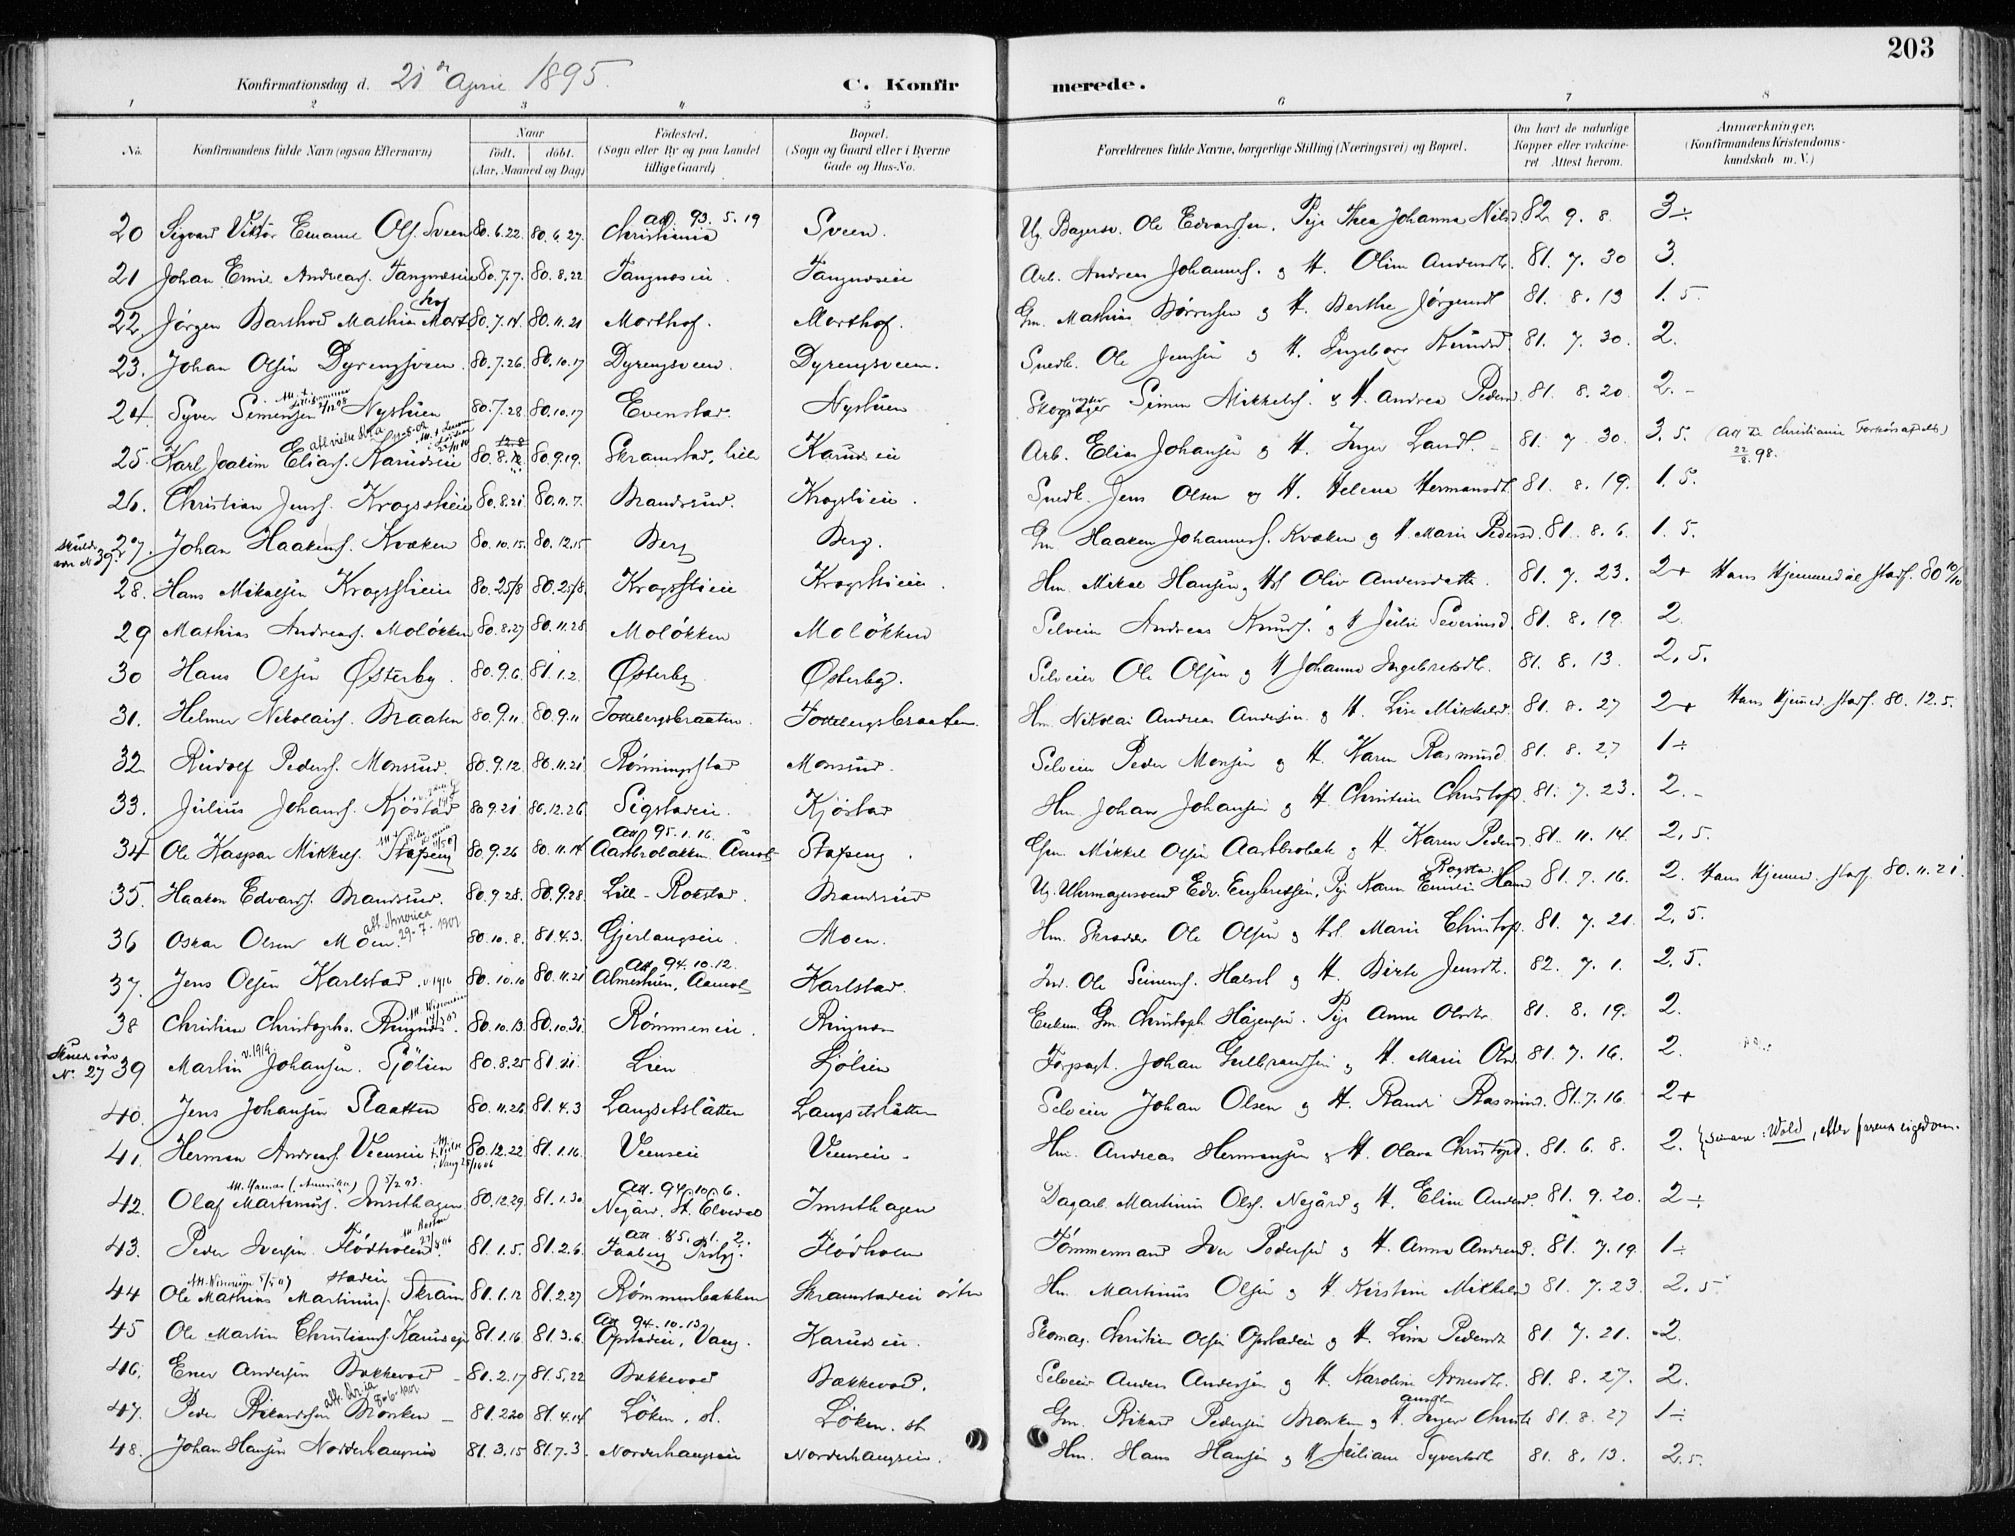 203
Konfirmationsdag d. 21de April 1895.
C. Konfirmerede.
1 2 3 4 5 6 7 8
No. Konfirmandens fulde Navn (ogsaa Efternavn) Naar født. døbt. (Aar, Maaned og Dag) Fødested. (Sogn eller By og paa Landet tillige Gaard) Bopæl. (Sogn og Gaard eller i Byerne Gade og Hus-No. Forældrenes fulde Navne, borgerlige Stilling (Næringsvei) og Bopæl. Om havt de naturlige Kopper eller vakcineret. Attest herom. Anmærkninger. (Konfirmandens Kristendomskundskab m. V.)
20 Sigvard Viktor Emanuel Ols. Sveen 80.6.22. 80.6.27. Christiania att. 93.5.19 Sveen. Ug. Bagersv. Ole Edvardsen. Pige Thea Johanna Nilsd. 82. 9. 8. 3÷
21 Johan Emil Andreass. Tangnæseie 80.7.7. 80.8.22 Tangnæseie. Tangnæseie Arb. Andreas Johanness. og H. Oline Andersdtr. 81. 7. 30 3.
22. Jørgen Barthod Mathias. Morthof 80.7.14. 80.11.21 Morthof. Morthof. Gm. Mathias Børresen og H. Berthe Jørgensdt 81. 8. 13 1.5
23. Johan Olsen Dyrengsveen. 80.7.26. 80.10.17 Dyrengsveen. Dyrengsveen. Snedk. Ole Jensen og H. Ingeborg Knudsd. 81. 7. 30. 2.
24. Syver Simensen Nystuen 80.7.28. 80.10.17 Evenstad. Nystuen Skogvogter Simen Mikkels. og H. Andrea Pedersd. 81. 8. 20. 2.-
25. Karl Joakim Eliass. Karudseie 80.8.12 80.9.19. Skramstad, lille Karudseie Arb. Elias Johansen og H. Inger Larsd. 81. 7. 30. 3.5. (Att til Christiania 22/8.98.
26. Christian Jenss. Krogsthieie 80.8.21 80.11.7. Brandsrud. Krogstieie. Snedk. Jens Olsen og H. Helena Hermansdt 81. 8. 19. 1.5.
27. Johan Haakens. Kvæken 80.10.15. 80.12.15 Berg Berg. Gm. Haaken Johanness. Kvæken og H. Marie Pedersd. 81. 8. 6. 1.5
28. Hans Mikalsen Krogsthieie 80.25/8 80.25/8. Krogsthieie Krogstieie. Hm. Mikal Hansen og H. Oliv Andersdatter 81. 7. 23. 2+ Hans Hjemmedøb stadf. 80 10/10
29 Mathias Andreass. Moløkken 80.8.27 80.11.28 Moløkken Moløkken Selveier Andreas Knuds. og H Julie Severinsd. 81. 8. 19. 2.
30 Hans Olsen Østerby. 80.9.6. 81.1.2. Østerby Østerby. Selveier Ole Olsen og H Johanne Ingebretsdtr. 81. 8. 13. 2.5.
31. Helmer Nikolais. Braaten 80.9.11. 80.9.11 Tosebergsbraaten. Tosebergsbraaten Hm. Nikolai Andreas Andersen og H. Lise Mikkelsd. 81. 8. 27 2+ Hans Hjemmed. stadf. 80. 12. 5.
32 Rudolf Peders. Monsrud. 80.9.12. 80.11.21. Rønningstad Monsrud. Selveier Peder Monsen og H. Karen Rasmusd. 81. 8. 27. 1÷
33. Julius Johans. Kjøstad 80.9.21 80.12.26. Sigstadeie. Kjøstad Hm. Johan Johansen og H. Christine Christofd. 81. 7. 23. 2.-
34 Ole Kaspar Mikkels. Stafseng 80.9.26 80.11.14 Aastbrobakken Aamot att 95.1.16. Stafseng. Gm. Mikkel Olsen Aastbrobak. og H. Karen Pedersd. 81. 11. 14. 2.5.
35. Haaken Edvards. Brandsrud. 80.9.28. 80.9.28. Lille-Rokstad. Brandsrud Ug. Uhrmagersvend Edv. Engbretsen, Pige Karen Emilie Hans. Rogstad 81. 7. 16. 2. Hans Hjemmed. stadf. 80. 11. 21.
36 Oskar Olsen Moen. att. America 29-7-1901 80.10.8. 81.4.3. Gjerlaugseie. Moen. Hm. Skrædder Ole Olsen og H. Marie Christofd. 81. 7. 21. 2.5.
37. Jens Olsen Karlstad. v. 1916 80.10.10 80.11.21 Almestuen, Aamot att 94.10.12. Karlstad. Ind. Ole Simens. Halset og H. Birte Jensdt. 82. 7. 1. 2.5.
38 Christian Christophs. Ringnæs. 80.10.13. 80.10.31. Rømmeneie. Ringnæs Enkem. Gm. Christoph. Hågensen. Pige Anne Olsdtr. 81. 8. 19. 2.
Skulde være No. 27 39 Martin Johansen Sjølien v. 1919. 80.8.25 81.1.1. Lien Sjølien Forpagt. Johan Gulbrandsen og H. Marie Olsd. 81. 7. 16. 2.
40. Jens Johansen Slaatten 80.11.26 81.4.3 Langsetslåtten Langsetslåtten Selveier Johan Olsen og H. Randi Rasmusd. 81. 7. 16. 2+
41. Herman Andreass. Veenseie 80.12.22 81.1.16. Veenseie Veenseie. Hm. Andreas Hermansen og H. Olava Christofd. 81. 6. 8. 2. {senere: Wold, efter farens eigedom.
42. Olaf Martinius. Imsethagen 80.12.29. 81.1.30. Negård, St. Elverdal att. 94.10.6. Imsethagen Dagarb. Martinius Ols. Negård og H. Eline Andersd. 81. 9. 20. 2÷
43. Peder Iversen Flødholen. 81.1.5. 81.2.6. Faaberg Prstg. att. 85. 1. 2. Flødholen Tømmermand Iver Pedersen og H. Anna Andersd. 81. 7. 19. 1÷
44 Ole Mathias Martinius. Skramstadeie 81.1.12 81.2.27 Rømmenbakken Skramstadeie østre Hm. Martinius Olsen og H. Kirstine Mikkelsd. 81. 7. 23. 2.5
45 Ole Martin Christians. Karudseje 81.1.16. 81.3.6. Opstadeie, Vang. att 94.10.13. Karudseie. Skomag. Christian Olsen Opstadeie og H. Lina Pedersdt. 81. 7. 21. 2.
46. Ener Andersen Bækkevold 81.2.17 81.5.22 Bækkevold Bækkevold. Selveier Anders Andersen og H. Karoline Arnesdtr. 81. 8. 27. 2.
47. Peder Rikardsen Brænken att. Kr.ia 8-6-1901 81.2.20 81.4.14 Løken, st. Løken. st Gm. Rikard Pedersen Brænken og H. Inger Christiansdtr 81. 8. 27 1÷
48. Johan Hansen Norderhaugseie 81.3.15 81.7.3. Norderhaugseie Norderhaugseie. Hm. Hans Hansen og H Juliane Syvertsdtr 81. 8. 13. 2.5.